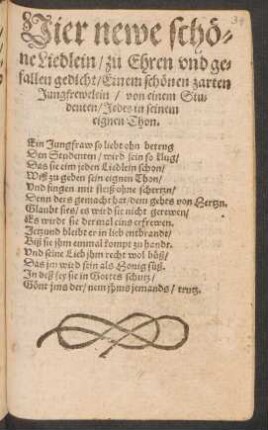 34
Vier newe schö⸗
ne Liedlein / zu Ehren vnd ge⸗
fallen gedicht / Einem schönen zarten
Jungfrewelein / von einem Stu⸗
denten / Jedes in seinem
eignen Thon.
Ein Jungfraw so liebt ohn betrug
Den Studenten / wird sein so klug /
Das sie eim jeden Liedlein schon /
Weß zu geben sein eignen Thon /
Vnd singen mit fleiß ohne schertzn /
Denn ders gemacht hat / dem gehts von Hertzn.
Glaubt sies / es wird sie nicht gerewen /
Es wirdt sie dermal eins erfrewen.
Jetzund bleibt er in lieb entbrandt /
Biß sie jhm einmal kompt zu handt.
Vnd seine Lieb jhm recht wol büß /
Das jm wird sein als Honig süß.
In deß sey sie in Gottes schutz /
Gönt jms der / nem jhms jemands / trutz.